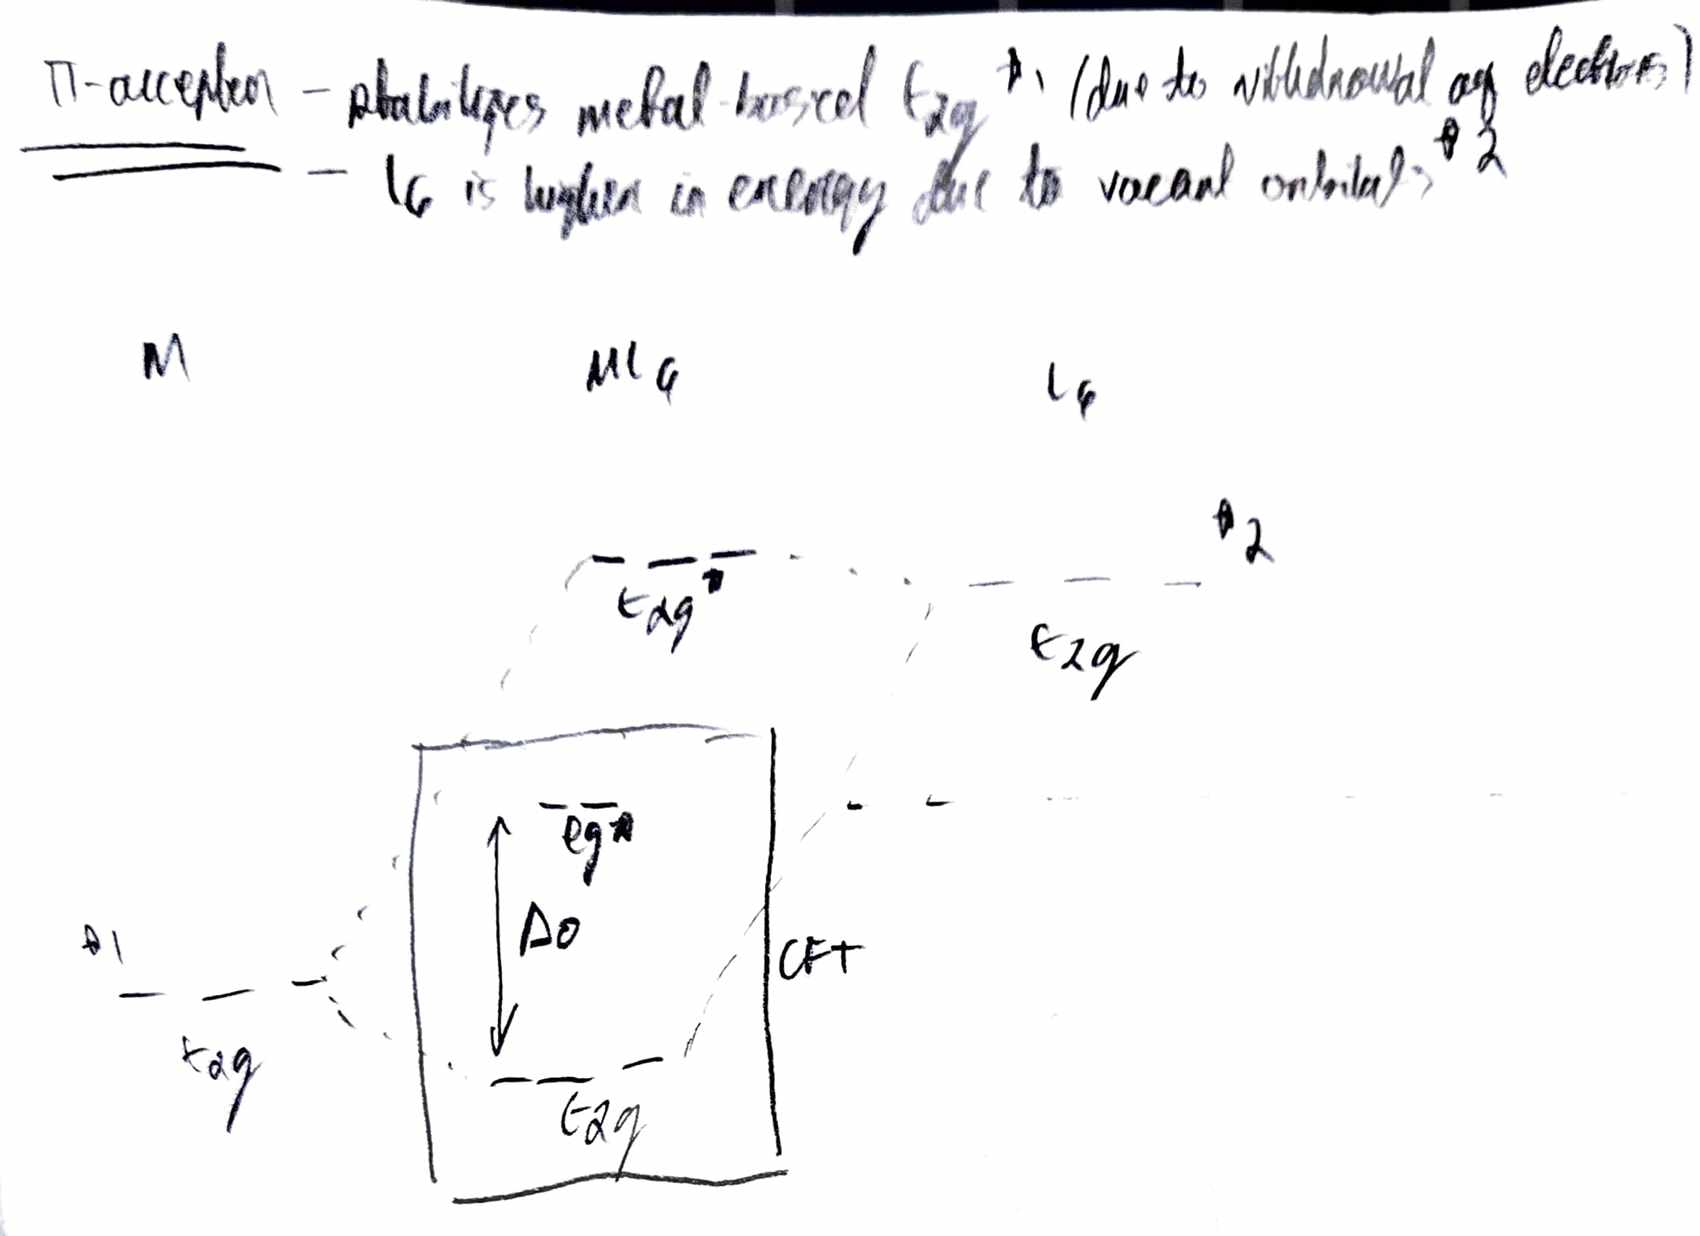 π-acceptor – stabilizes metal-based t2g *1 (due to withdrawal of electrons)
– L6 is higher in energy due to vacant orbitals *2
M ML6 L6
*2
t2g* t2g
eg*
*1 Δo CFT
t2g
t2g